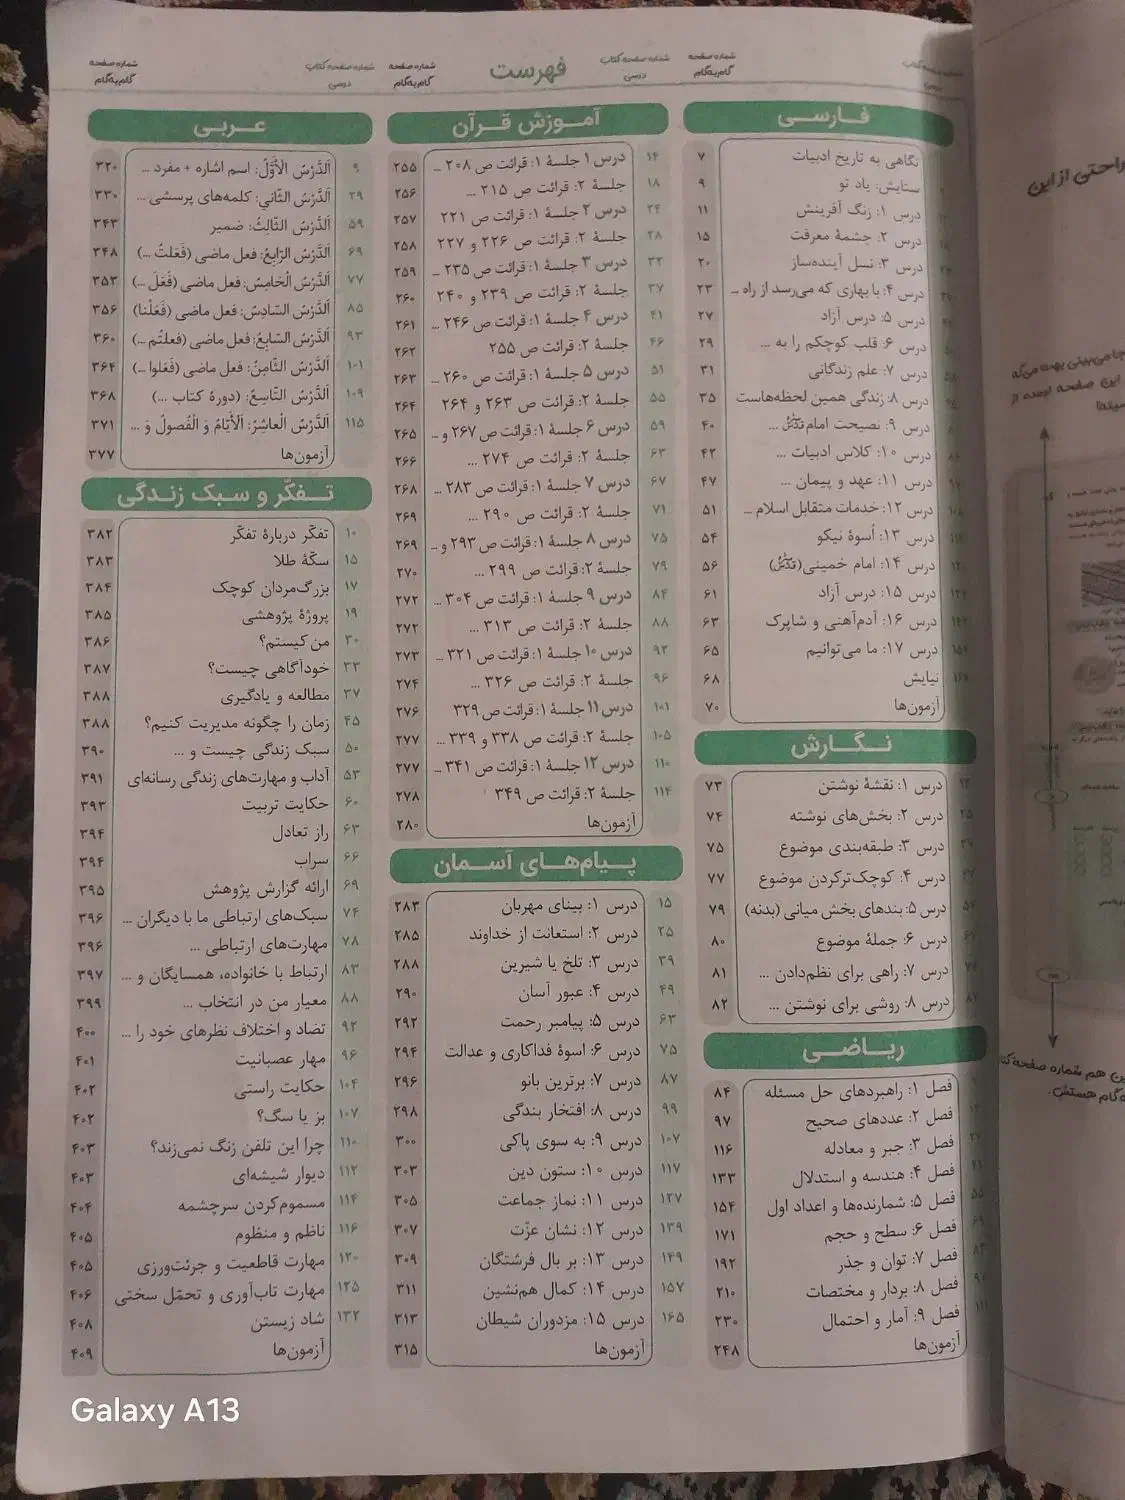 فهرست
شماره صفحه کتاب درسی
شماره صفحه گام‌به‌گام
فـارسـی
نگاهی به تاریخ ادبیات ۷
ستایش: یاد تو ۹
درس ۱: زنگ آفرینش ۱۱
درس ۲: چشمهٔ معرفت ۱۵
درس ۳: نسل آینده‌ساز ۲۰
درس ۴: با بهاری که می‌رسد از راه ... ۲۳
درس ۵: درس آزاد ۲۷
درس ۶: قلب کوچکم را به ... ۲۹
درس ۷: علم زندگانی ۳۱
درس ۸: زندگی همین لحظه‌هاست ۳۵
درس ۹: نصیحت امام ... ۴۰
درس ۱۰: کلاس ادبیات ... ۴۲
درس ۱۱: عهد و پیمان ... ۴۷
درس ۱۲: خدمات متقابل اسلام ... ۵۱
درس ۱۳: اُسوهٔ نیکو ۵۴
درس ۱۴: امام خمینی ۵۶
درس ۱۵: درس آزاد ۶۱
درس ۱۶: آدم‌آهنی و شاپرک ۶۳
درس ۱۷: ما می‌توانیم ۶۵
نیایش ۶۸
آزمون‌ها ۷۰
نـگـارش
درس ۱: نقشهٔ نوشتن ۷۳
درس ۲: بخش‌های نوشته ۷۴
درس ۳: طبقه‌بندی موضوع ۷۵
درس ۴: کوچک‌ترکردن موضوع ۷۷
درس ۵: بندهای بخش میانی (بدنه) ۷۹
درس ۶: جملهٔ موضوع ۸۰
درس ۷: راهی برای نظم‌دادن ... ۸۱
درس ۸: روشی برای نوشتن ... ۸۲
ریـاضـی
فصل ۱: راهبردهای حل مسئله ۸۴
فصل ۲: عددهای صحیح ۹۷
فصل ۳: جبر و معادله ۱۱۶
فصل ۴: هندسه و استدلال ۱۳۳
فصل ۵: شمارنده‌ها و اعداد اول ۱۵۴
فصل ۶: سطح و حجم ۱۷۱
فصل ۷: توان و جذر ۱۹۲
فصل ۸: بردار و مختصات ۲۱۰
فصل ۹: آمار و احتمال ۲۳۰
آزمون‌ها ۲۴۸
شماره صفحه کتاب درسی
شماره صفحه گام‌به‌گام
آمـوزش قـرآن
۱۴ درس ۱ جلسهٔ ۱: قرائت ص ۲۰۸ ... ۲۵۵
۱۸ جلسهٔ ۲: قرائت ص ۲۱۵ ... ۲۵۶
۲۴ درس ۲ جلسهٔ ۱: قرائت ص ۲۲۱ ۲۵۷
۲۸ جلسهٔ ۲: قرائت ص ۲۲۶ و ۲۲۷ ۲۵۸
۳۲ درس ۳ جلسهٔ ۱: قرائت ص ۲۳۵ ... ۲۵۹
۳۷ جلسهٔ ۲: قرائت ص ۲۳۹ و ۲۴۰ ۲۶۰
۴۱ درس ۴ جلسهٔ ۱: قرائت ص ۲۴۶ ... ۲۶۱
۴۶ جلسهٔ ۲: قرائت ص ۲۵۵ ۲۶۲
۵۱ درس ۵ جلسهٔ ۱: قرائت ص ۲۶۰ ... ۲۶۳
۵۵ جلسهٔ ۲: قرائت ص ۲۶۳ و ۲۶۴ ۲۶۴
۵۹ درس ۶ جلسهٔ ۱: قرائت ص ۲۶۷ و ... ۲۶۵
۶۳ جلسهٔ ۲: قرائت ص ۲۷۴ ... ۲۶۶
۶۷ درس ۷ جلسهٔ ۱: قرائت ص ۲۸۳ ... ۲۶۸
۷۱ جلسهٔ ۲: قرائت ص ۲۹۰ ... ۲۶۹
۷۵ درس ۸ جلسهٔ ۱: قرائت ص ۲۹۳ و ... ۲۶۹
۷۹ جلسهٔ ۲: قرائت ص ۲۹۹ ... ۲۷۰
۸۴ درس ۹ جلسهٔ ۱: قرائت ص ۳۰۴ ... ۲۷۲
۸۸ جلسهٔ ۲: قرائت ص ۳۱۳ ... ۲۷۲
۹۲ درس ۱۰ جلسهٔ ۱: قرائت ص ۳۲۱ ... ۲۷۳
۹۶ جلسهٔ ۲: قرائت ص ۳۲۶ ... ۲۷۴
۱۰۱ درس ۱۱ جلسهٔ ۱: قرائت ص ۳۲۹ ۲۷۶
۱۰۵ جلسهٔ ۲: قرائت ص ۳۳۸ و ۳۳۹ ... ۲۷۷
۱۱۰ درس ۱۲ جلسهٔ ۱: قرائت ص ۳۴۱ ... ۲۷۷
۱۱۴ جلسهٔ ۲: قرائت ص ۳۴۹ ۲۷۸
آزمون‌ها ۲۸۰
پـیـام‌هـای آسـمان
۱۵ درس ۱: بینای مهربان ۲۸۳
۲۵ درس ۲: استعانت از خداوند ۲۸۵
۳۹ درس ۳: تلخ یا شیرین ۲۸۸
۴۹ درس ۴: عبور آسان ۲۹۰
۶۳ درس ۵: پیامبر رحمت ۲۹۲
۷۵ درس ۶: اسوهٔ فداکاری و عدالت ۲۹۴
۸۷ درس ۷: برترین بانو ۲۹۶
۹۹ درس ۸: افتخار بندگی ۲۹۸
۱۰۷ درس ۹: به سوی پاکی ۳۰۰
۱۱۷ درس ۱۰: ستون دین ۳۰۳
۱۲۷ درس ۱۱: نماز جماعت ۳۰۵
۱۳۹ درس ۱۲: نشان عزّت ۳۰۷
۱۴۹ درس ۱۳: بر بال فرشتگان ۳۰۹
۱۵۷ درس ۱۴: کمال هم‌نشین ۳۱۱
۱۶۵ درس ۱۵: مزدوران شیطان ۳۱۳
آزمون‌ها ۳۱۵
شماره صفحه کتاب درسی
شماره صفحه گام‌به‌گام
عـربی
۹ اَلدَّرْسُ الْأَوَّلُ: اسم اشاره + مفرد ... ۳۲۰
۲۹ اَلدَّرْسُ الثّانی: کلمه‌های پرسشی ... ۳۳۰
۵۹ اَلدَّرْسُ الثّالِثُ: ضمیر ۳۴۳
۶۹ اَلدَّرْسُ الرّابِعُ: فعل ماضی (فَعَلتُ ...) ۳۴۸
۷۷ اَلدَّرْسُ الْخامِسُ: فعل ماضی (فَعَلَ ...) ۳۵۳
۸۵ اَلدَّرْسُ السّادِسُ: فعل ماضی (فَعَلْنا) ۳۵۶
۹۳ اَلدَّرْسُ السّابِعُ: فعل ماضی (فعلتُم ...) ۳۶۰
۱۰۱ اَلدَّرْسُ الثّامِنُ: فعل ماضی (فَعَلوا ...) ۳۶۴
۱۰۹ اَلدَّرْسُ التّاسِعُ: (دورهٔ کتاب ...) ۳۶۸
۱۱۵ اَلدَّرْسُ الْعاشِرُ: اَلْأَیّامُ وَ الْفُصولُ وَ ... ۳۷۱
آزمون‌ها ۳۷۷
تـفکّر و سبک زنـدگی
۱۰ تفکّر دربارهٔ تفکّر ۳۸۲
۱۵ سکّهٔ طلا ۳۸۳
۱۷ بزرگ‌مردان کوچک ۳۸۴
۱۹ پروژهٔ پژوهشی ۳۸۵
۳۰ من کیستم؟ ۳۸۶
۳۳ خودآگاهی چیست؟ ۳۸۷
۳۷ مطالعه و یادگیری ۳۸۸
۴۵ زمان را چگونه مدیریت کنیم؟ ۳۸۸
۵۰ سبک زندگی چیست و ... ۳۹۰
۵۳ آداب و مهارت‌های زندگی رسانه‌ای ۳۹۱
۶۰ حکایت تربیت ۳۹۳
۶۳ راز تعادل ۳۹۴
۶۶ سراب ۳۹۴
۶۹ ارائه گزارش پژوهش ۳۹۵
۷۴ سبک‌های ارتباطی ما با دیگران ... ۳۹۶
۷۸ مهارت‌های ارتباطی ... ۳۹۶
۸۳ ارتباط با خانواده، همسایگان و ... ۳۹۷
۸۸ معیار من در انتخاب ... ۳۹۹
۹۲ تضاد و اختلاف نظرهای خود را ... ۴۰۰
۹۶ مهار عصبانیت ۴۰۱
۱۰۴ حکایت راستی ۴۰۲
۱۰۷ بز یا سگ؟ ۴۰۲
۱۱۰ چرا این تلفن زنگ نمی‌زند؟ ۴۰۳
۱۱۲ دیوار شیشه‌ای ۴۰۳
۱۱۴ مسموم‌کردن سرچشمه ۴۰۴
۱۱۶ ناظم و منظوم ۴۰۵
۱۲۰ مهارت قاطعیت و جرئت‌ورزی ۴۰۵
۱۲۵ مهارت تاب‌آوری و تحمّل سختی ۴۰۶
۱۳۲ شاد زیستن ۴۰۸
آزمون‌ها ۴۰۹
Galaxy A13